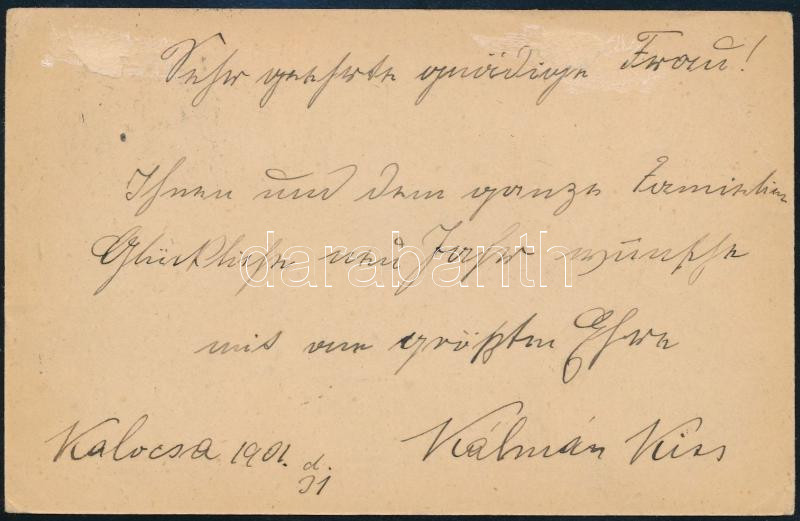 Sehr geehrte gnädige Frau!
Ihnen und dem ganze Familien
Glückliche neu Jahr wünsche
mit größten Ehre
Kalocsa 1901. d. 31
Kálmán Kiss
darabanth